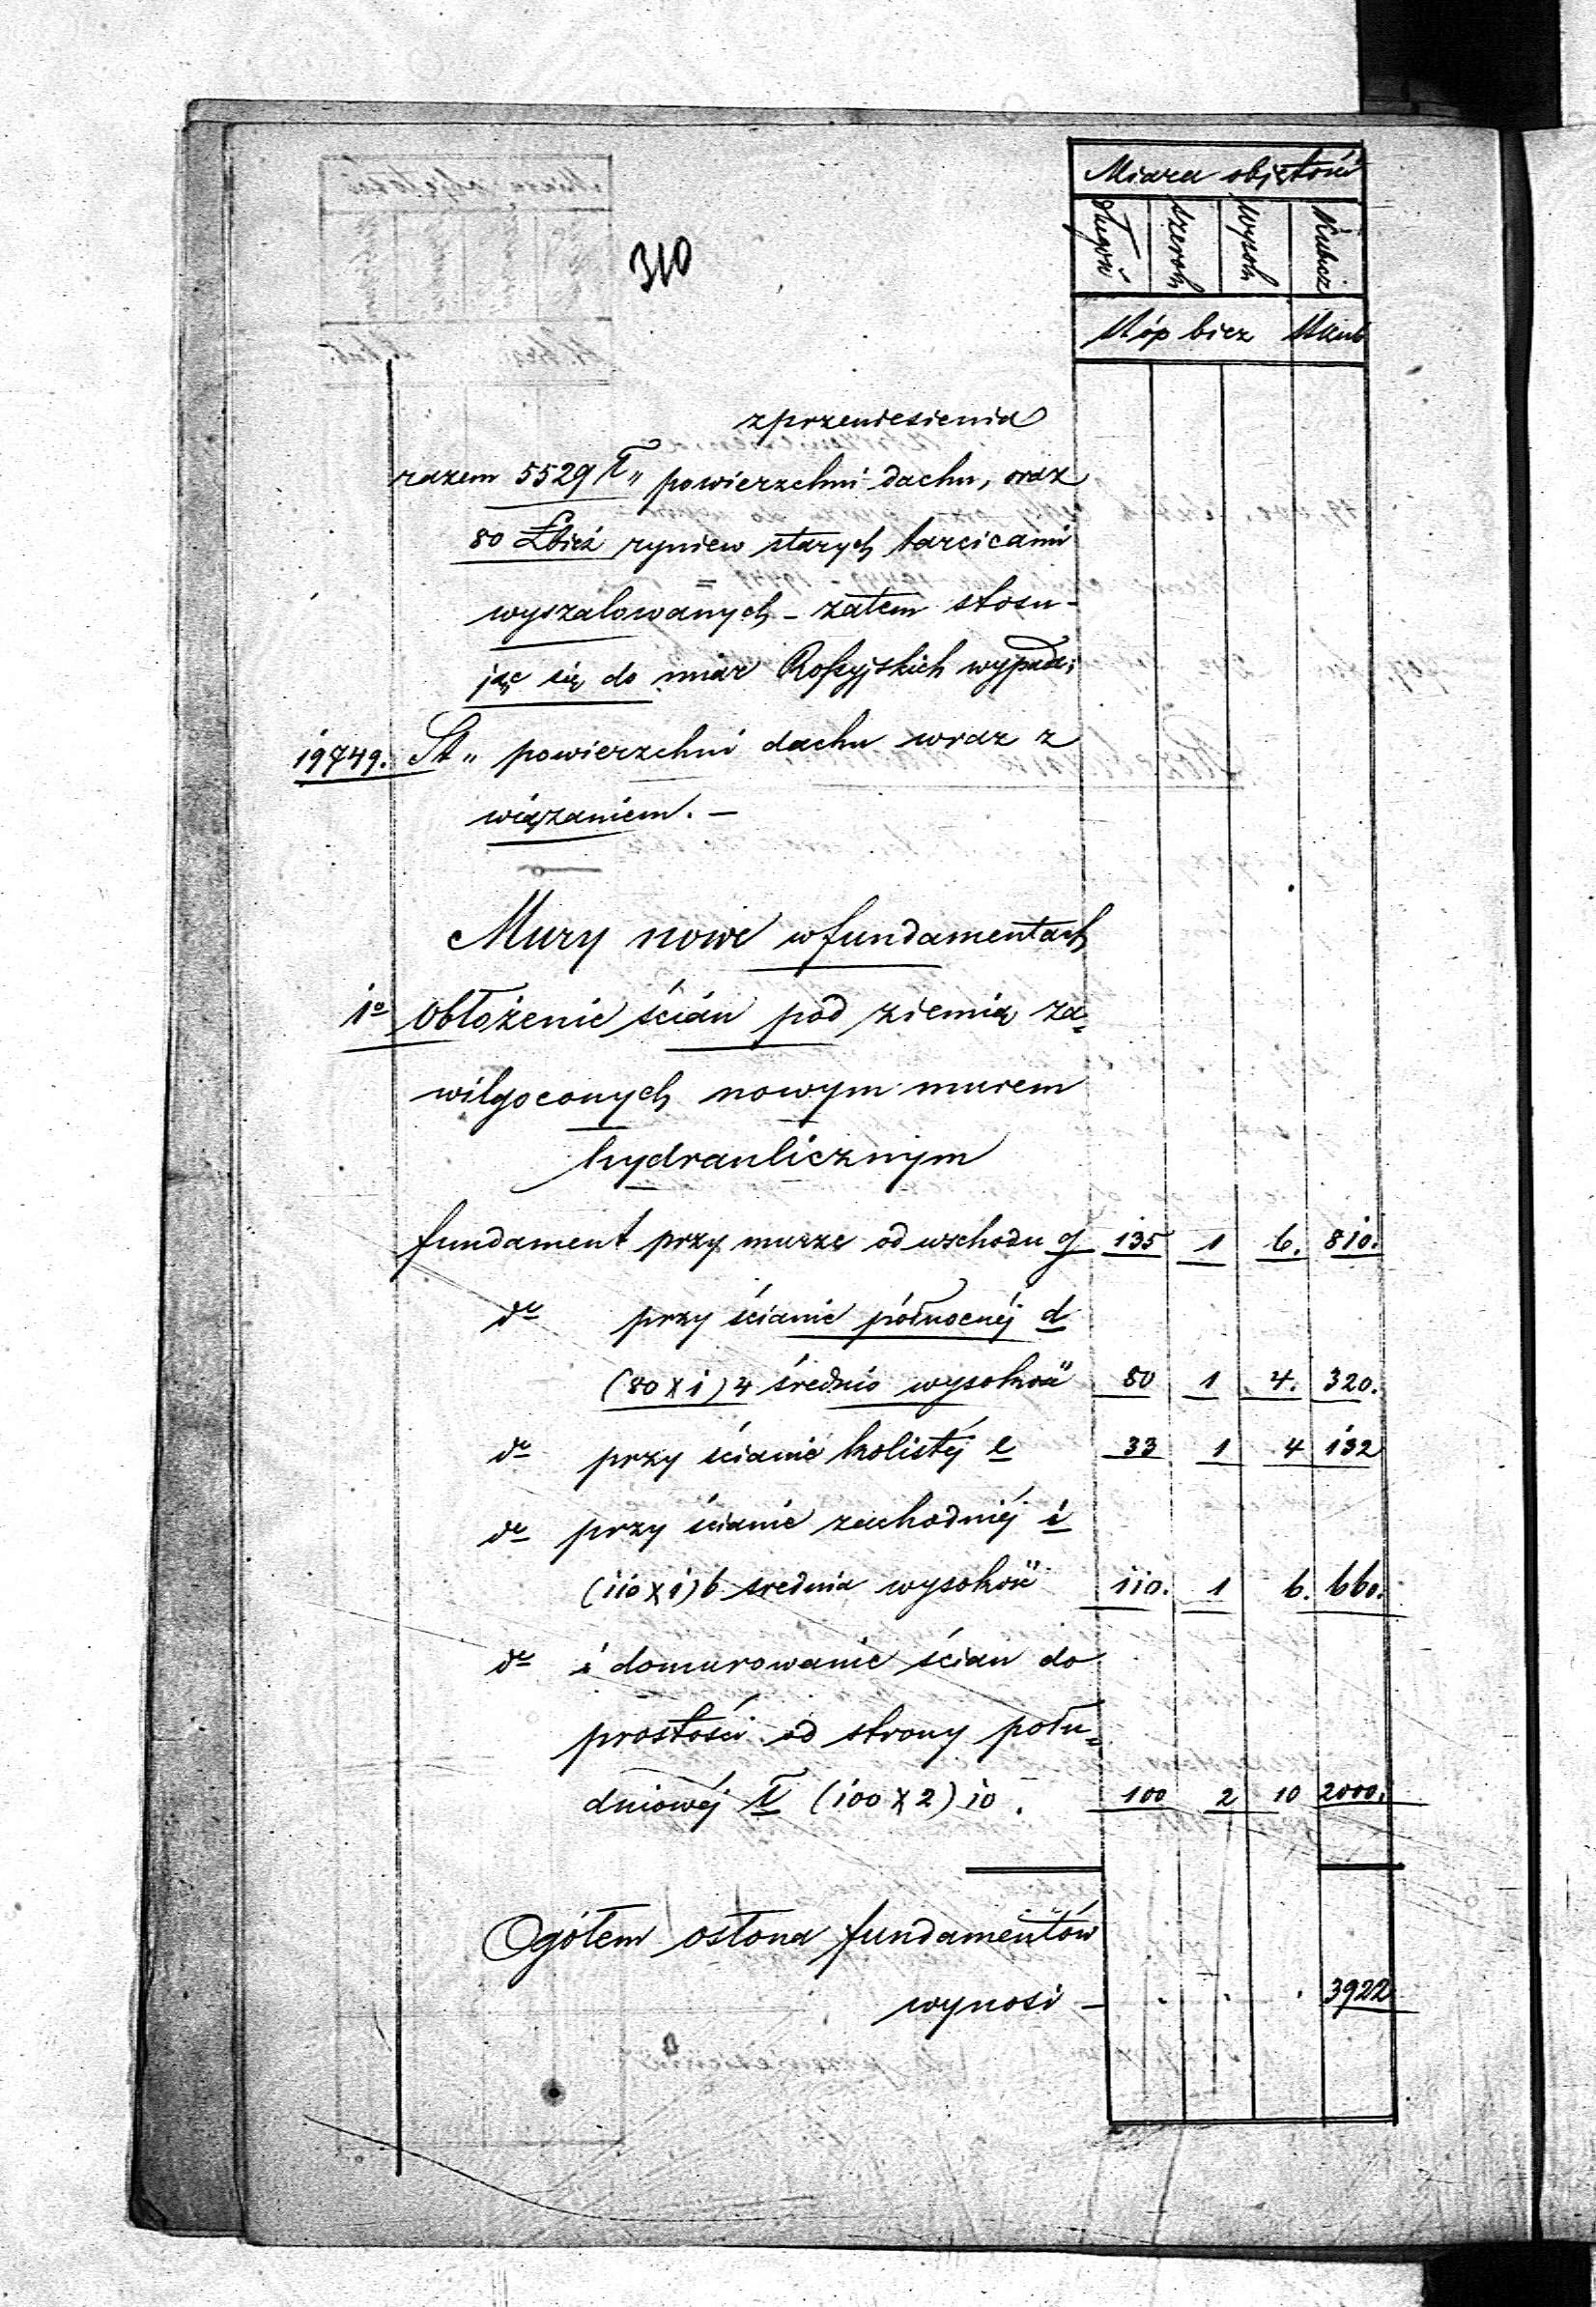 Miara objętości
310
długość szerok wysok Kubicz
stóp bież st kub
z przeniesienia
razem 5529 ł" powierzchni dachu, oraz
80 Łbież ryniew starych tarcicami
wyszalowanych – zatem stosu-
jąc się do miar Rossyjskich wypada;
19749. St" powierzchni dachu wraz z
wiązaniem. –
Mury nowe w fundamentach
1e Obłożenie ścian pod ziemią za=
wilgoconych nowym murem
hydraulicznym
fundament przy murze od wschodu g 135 1 6. 810.
do przy ścianie północnéj d
(80 x 1) 4 średnio wysokość 80 1 4. 320.
do przy ścianie kolistéj e 33 1 4 132
do przy ścianie zachodniéj i
(110 x 1) 6 srednia wysokość 110. 1 6. 660.
do i domurowanie ścian do
prostości od strony połu=
dniowéj ł (100 x 2) 10. 100 2 10 2000.
Ogółem osłona fundamentów
wynosi – . . . 3922